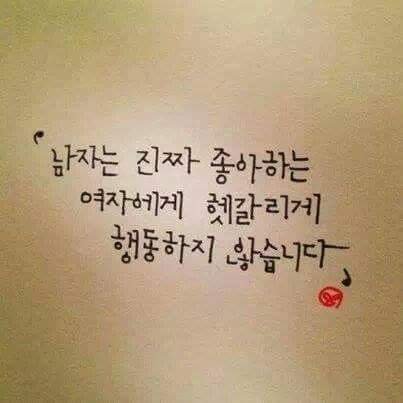 '남자는 진짜 좋아하는
여자에게 헷갈리게
행동하지 않습니다'